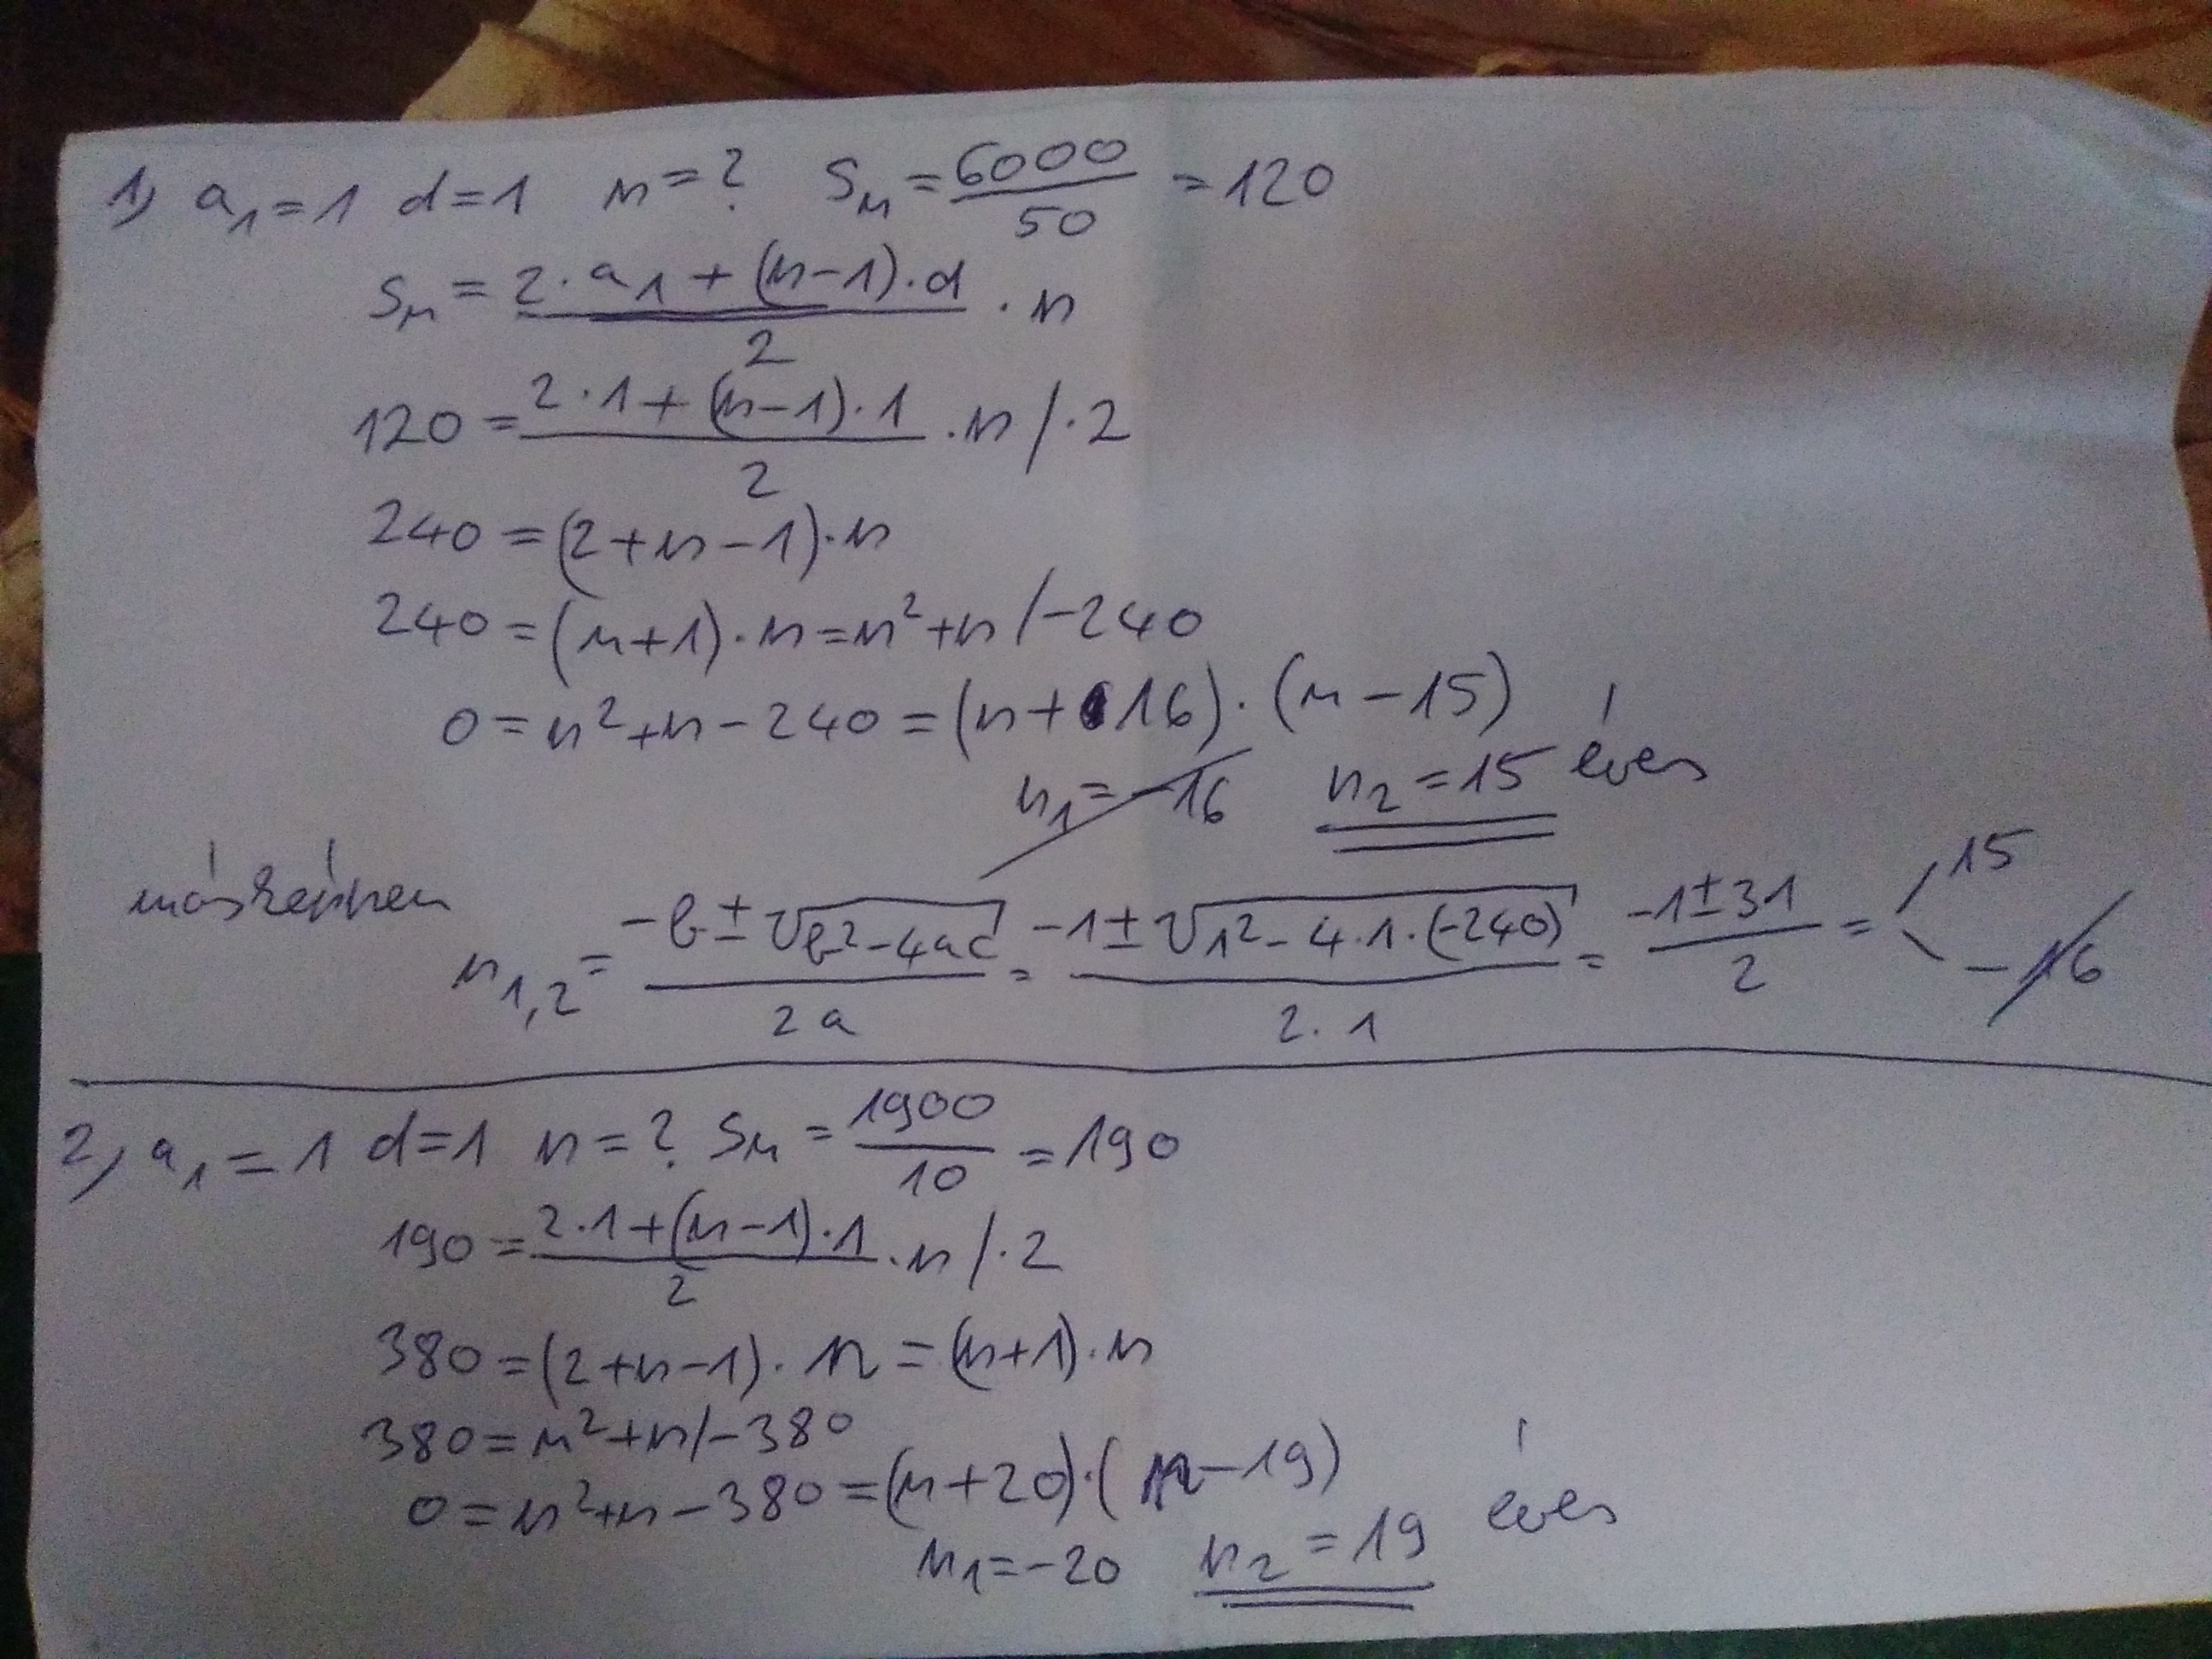 1) a₁=1 d=1 n=? Sₙ=6000/50=120
Sₙ=(2·a₁+(n-1)·d)/2·n
120=(2·1+(n-1)·1)/2·n /·2
240=(2+n-1)·n
240=(n+1)·n=n²+n /-240
0=n²+n-240=(n+16)·(n-15)
n₁=-16 n₂=15 éves
másképpen
n₁,₂=(-b±√(b²-4ac))/2a=(-1±√(1²-4·1·(-240)))/2·1=(-1±31)/2= 15 -16
2) a₁=1 d=1 n=? Sₙ=1900/10=190
190=(2·1+(n-1)·1)/2·n /·2
380=(2+n-1)·n=(n+1)·n
380=n²+n/-380
0=n²+n-380=(n+20)·(n-19)
n₁=-20 n₂=19 éves